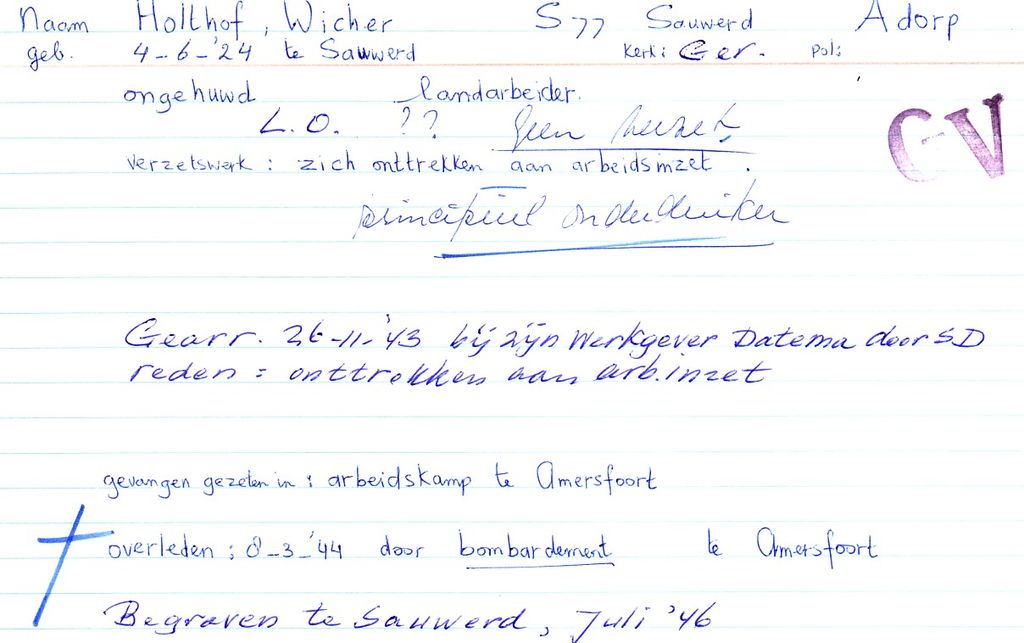 Naam Holthof, Wicher S 77 Sauwerd Adorp
geb. 4-6-'24 te Sauwerd Kerk: Ger. pol:
ongehuwd landarbeider.
L.O. ?? Geen verzet
GV
verzetswerk: zich onttrekken aan arbeidsinzet.
principieel onderduiker
Gearr. 26-11-'43 bij zijn werkgever Datema door S.D
reden = onttrekken aan arb.inzet
gevangen gezeten in: arbeidskamp te Amersfoort
overleden: 8-3-'44 door bombardement te Amersfoort
Begraven te Sauwerd, Juli '46